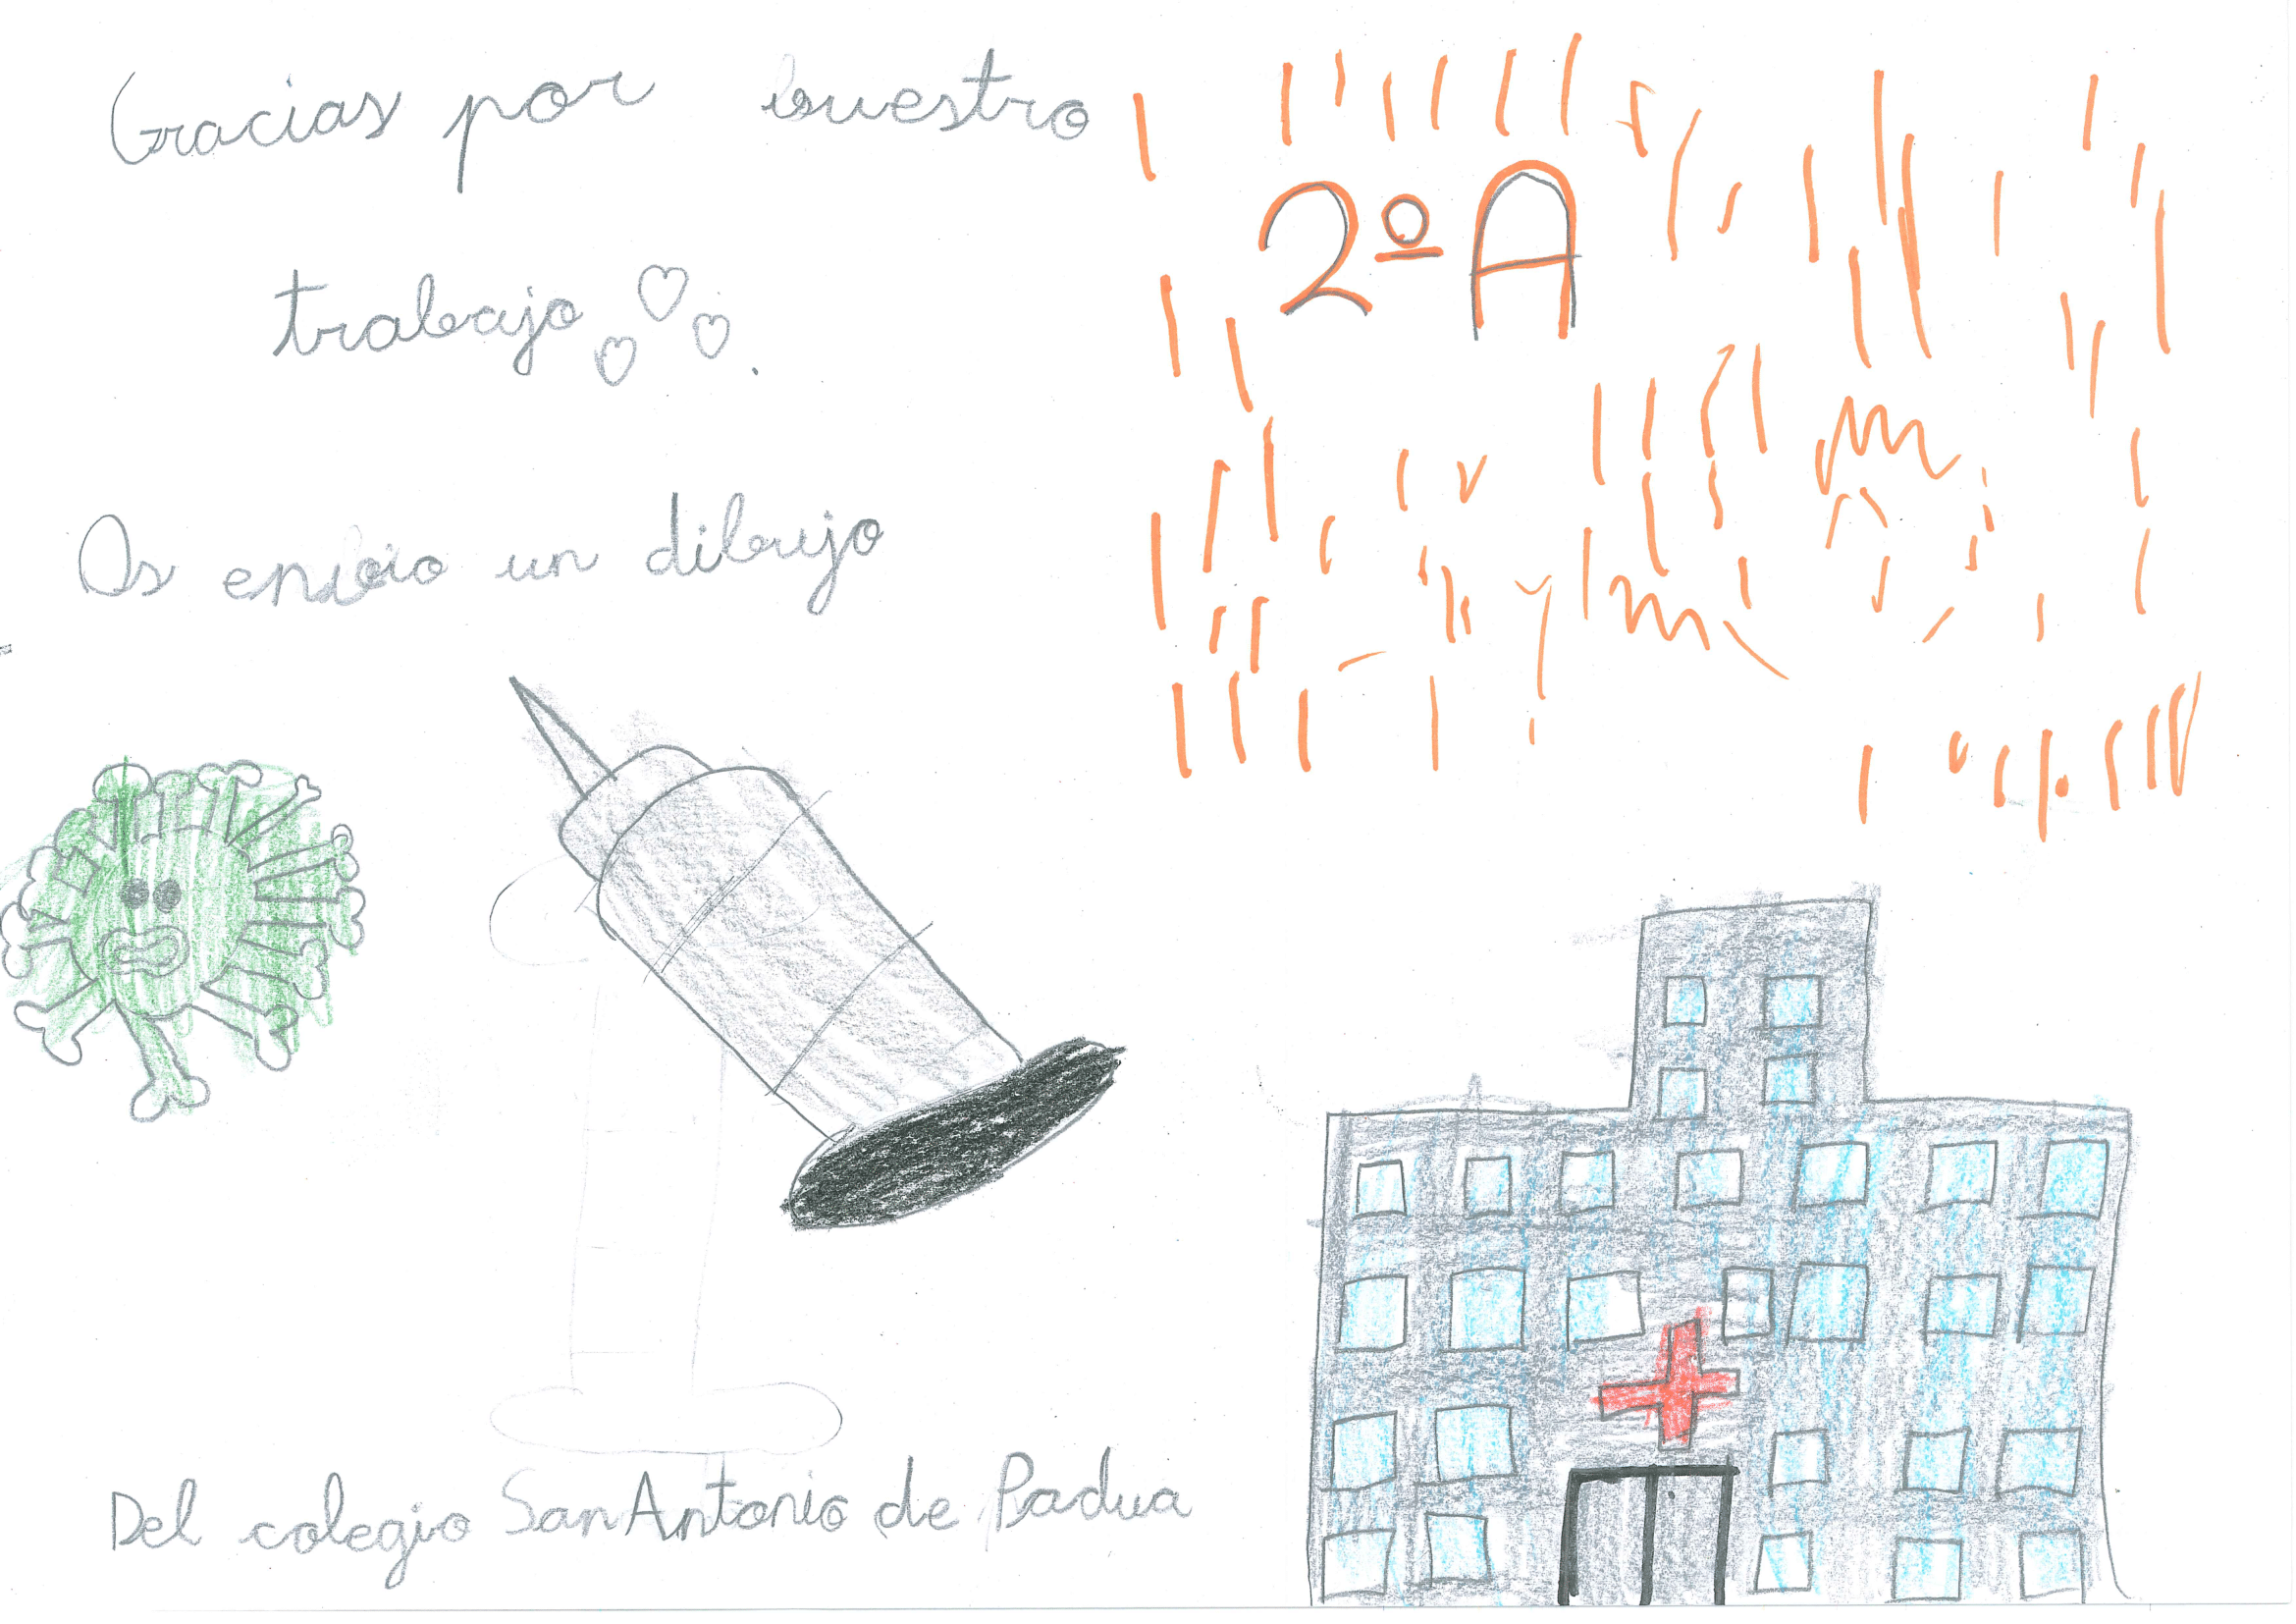 Gracias por buestro
trabajo
Os enbio un dibujo
2º A
Del colegio San Antonio de Padua